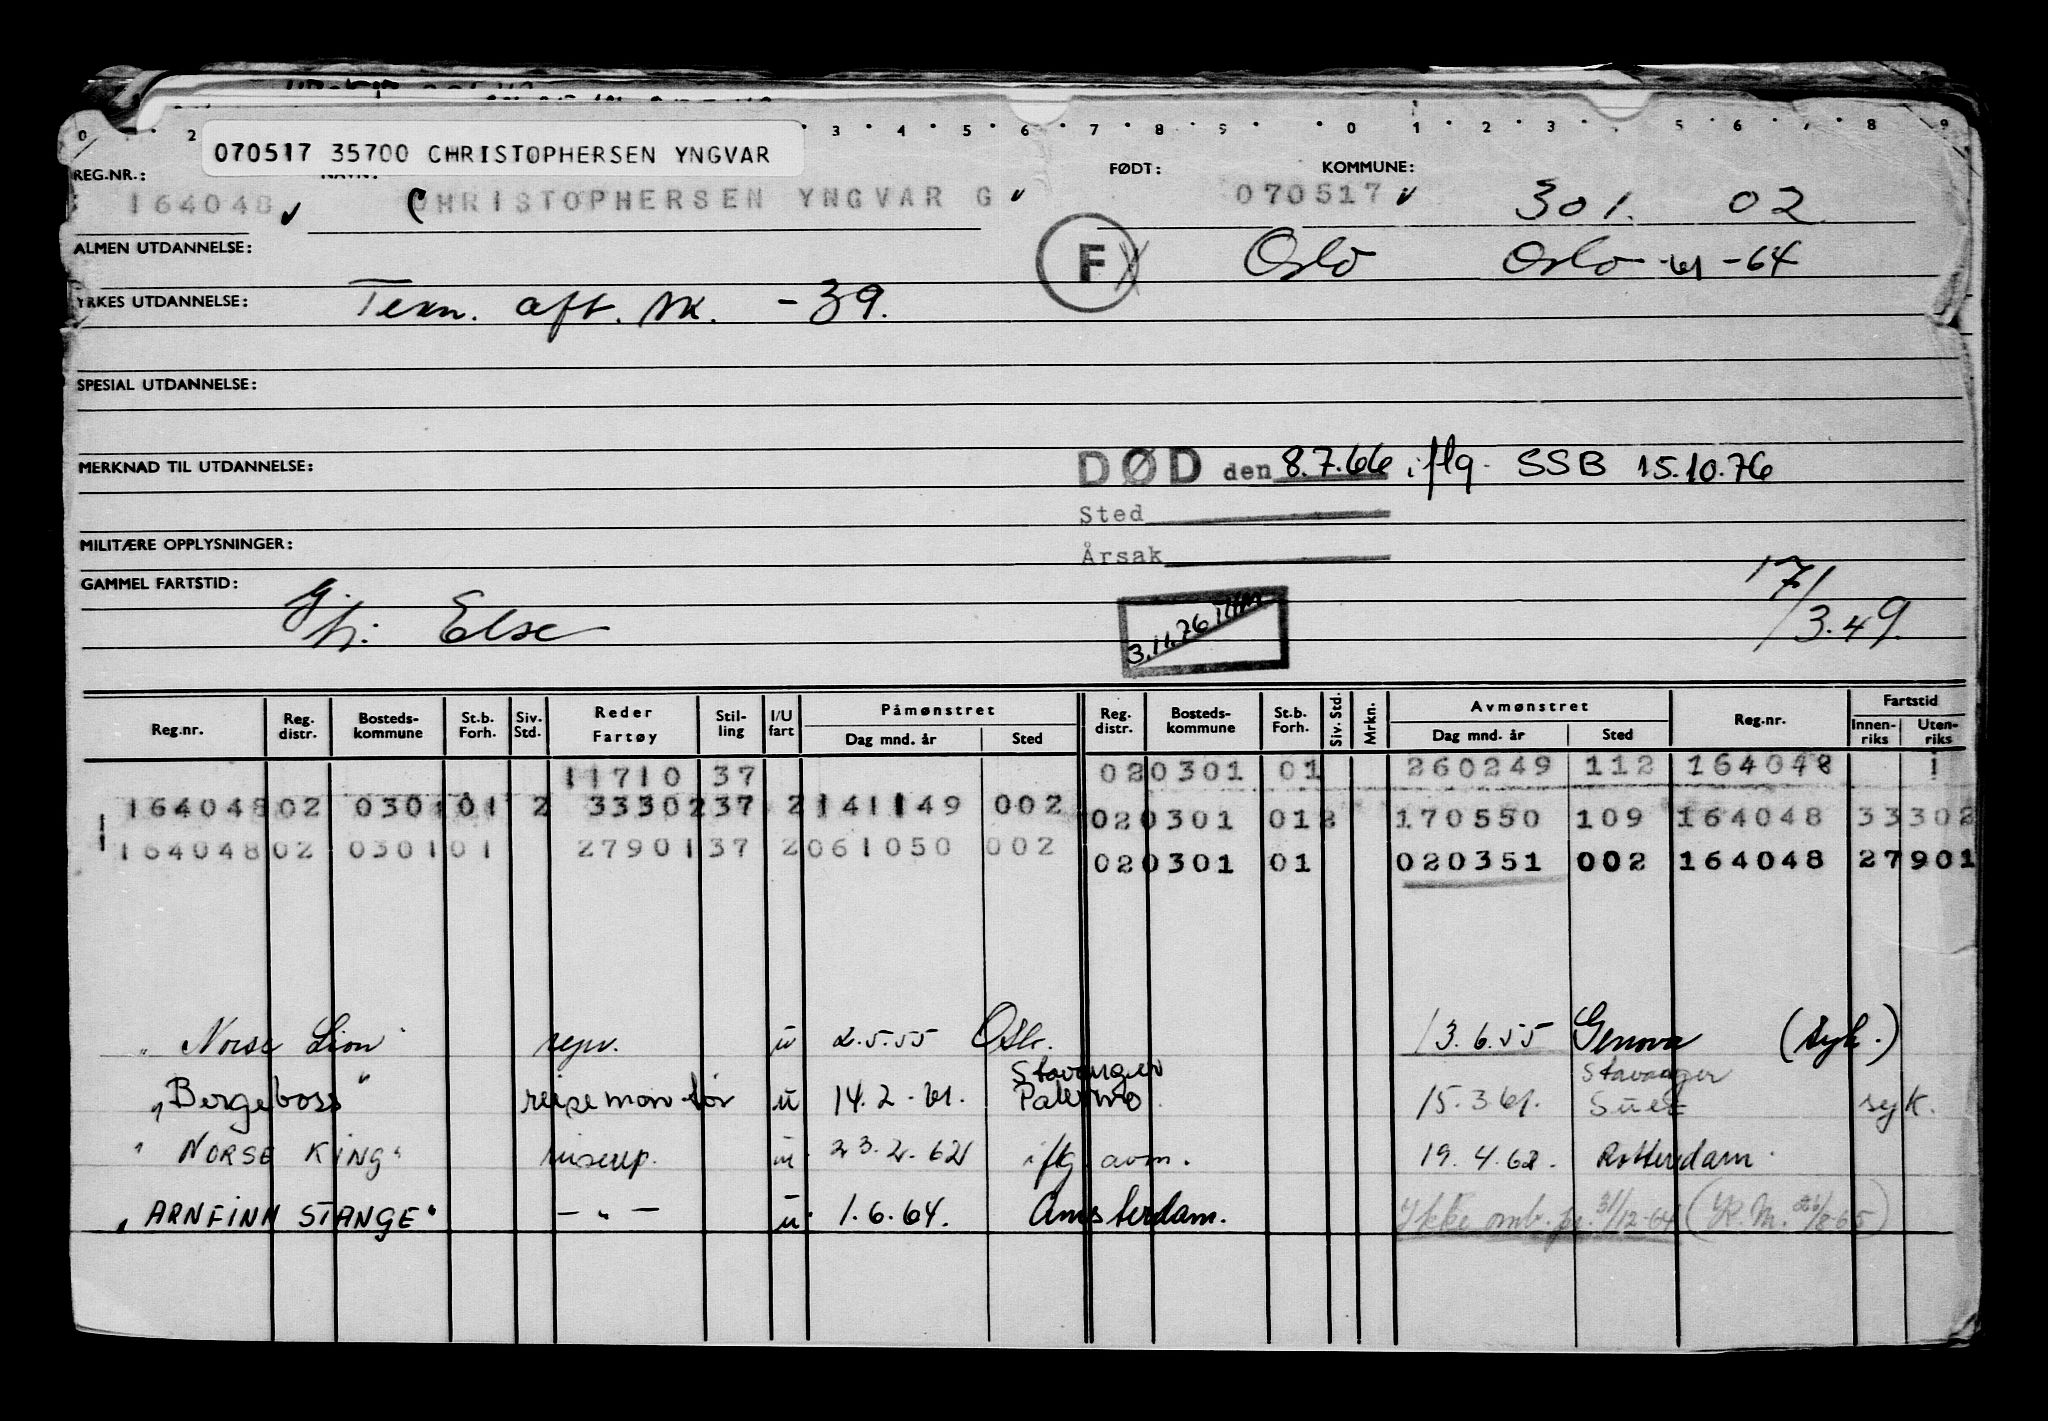 070517 35700 CHRISTOPHERSEN YNGVAR
0 2 3 4 5 6 7 8 9 0 1 2 3 5 6 7 8 9
REG.NR.: FØDT: KOMMUNE:
164048 CHRISTOPHERSEN YNGVAR G 070517 301. 02
ALMEN UTDANNELSE: F Oslo Oslo -61 -64
YRKES UTDANNELSE: Tekn. aft. sk. -39.
SPESIAL UTDANNELSE:
MERKNAD TIL UTDANNELSE: DØD den 8.7.66 iflg. SSB 15.10.76
Sted
MILITÆRE OPPLYSNINGER:
Årsak
GAMMEL FARTSTID: 17/3.49.
g. h. Else 3.11.76
Reg.nr. Reg. distr. Bosteds- kommune St.b. Forh. Siv. Std. Reder Fartøy Stil- ling I/U fart Påmønstret Dag mnd. år Sted Reg. distr. Bosteds- kommune St.b. Forh. Siv. Std. Mrkn. Avmønstret Dag mnd. år Sted Reg.nr. Fartstid Innen- riks Uten- riks
11710 37 02 0301 01 260249 112 164048 1
164048 02 0301 01 2 33302 37 2 141149 002 02 0301 01 2 170550 109 164048 33302
164048 02 0301 01 27901 37 2 061050 002 02 0301 01 020351 002 164048 27901
" Norse Lion repr. u 2.5.55 Oslo. 13.6.55 Genova (syk.)
Stavanger Stavanger
"Bergeboss" reisemontør u 14.2-61. Palermo 15.3 61. Suez syk.
"NORSE KING" reiserep. u 23.2.62 iflg. avm. 19.4.62. Rotterdam.
"ARNFINN STANGE" -"- u 1.6.64. Amsterdam. Ikke omb. pr. 31/12-64 (R.M. 26/8-65)